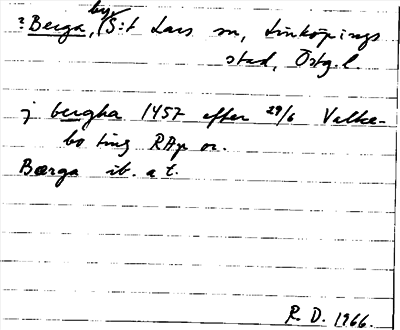 ? Berga, by, S:t Lars sn, Linköpings
stad, Östg. l.
j bergha 1457 efter 29/6 Valke-
bo ting RAp or.
Bærga ib. a t.
R. D. 1966.